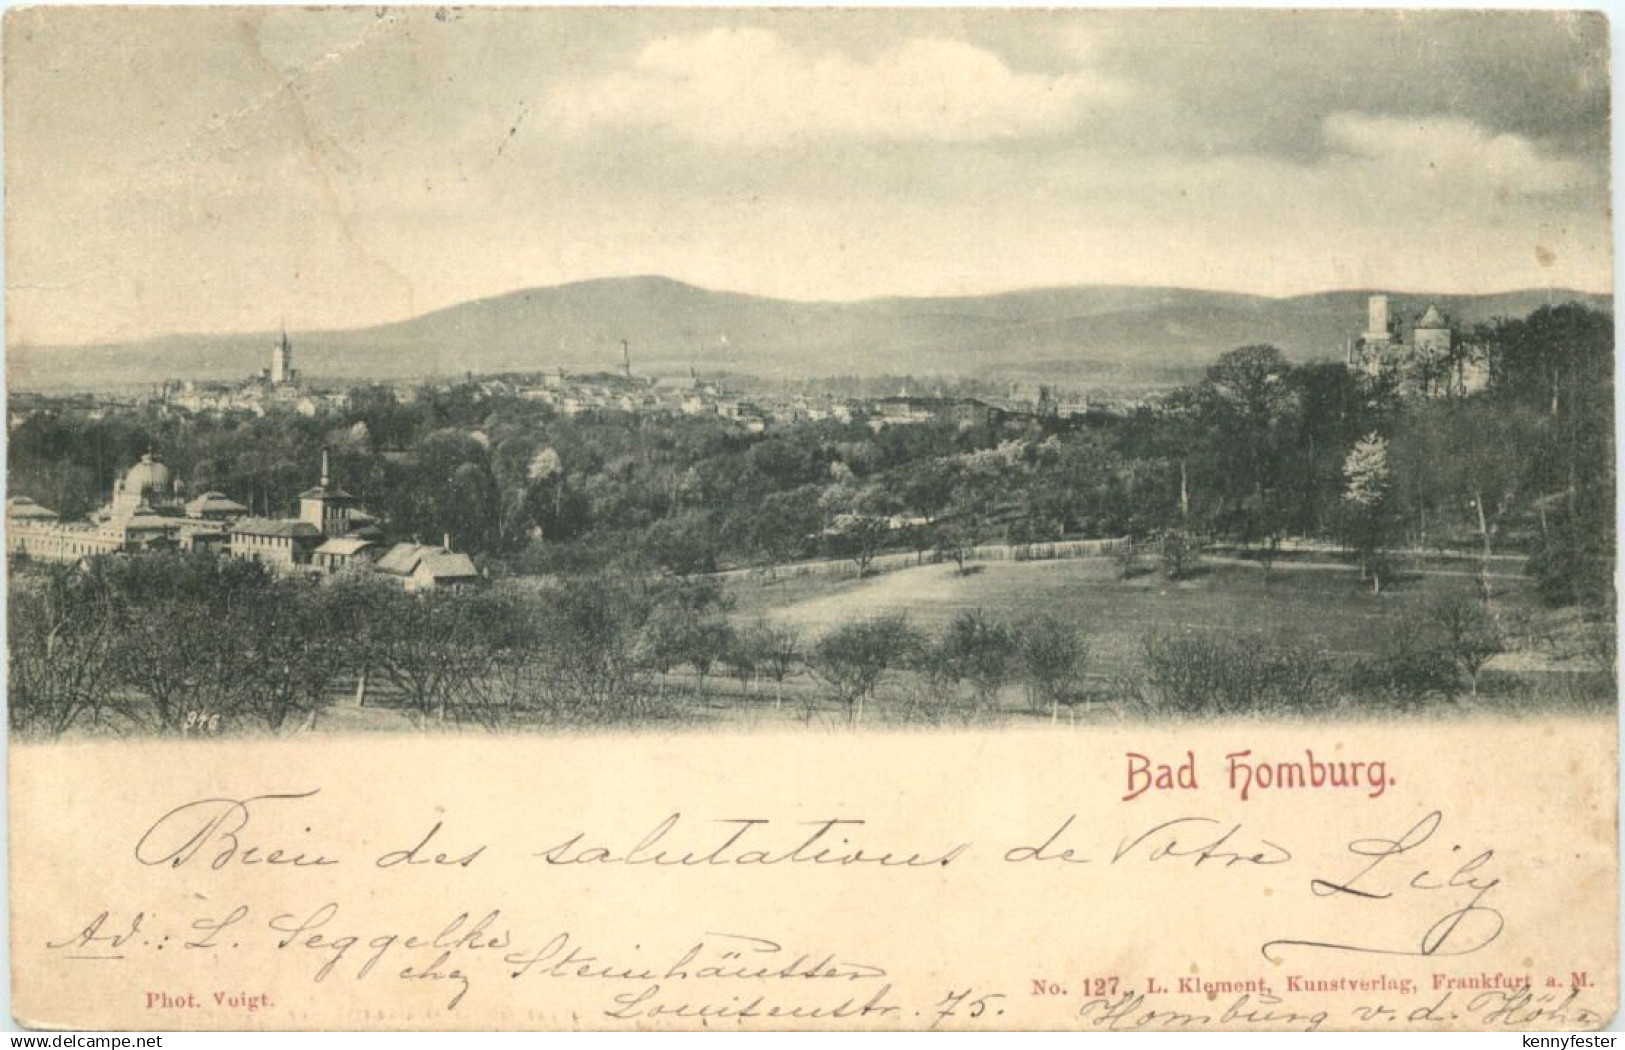 946
Bad Homburg.
Bien des salutations de Votre Lily
Ad.: L. Seggelke
chez Steinhäusser
Louisenstr. 75.
Homburg v. d. Höhe
Phot. Voigt.
No. 127. L. Klement, Kunstverlag, Frankfurt a. M.
hippostcard.com
kennyfester